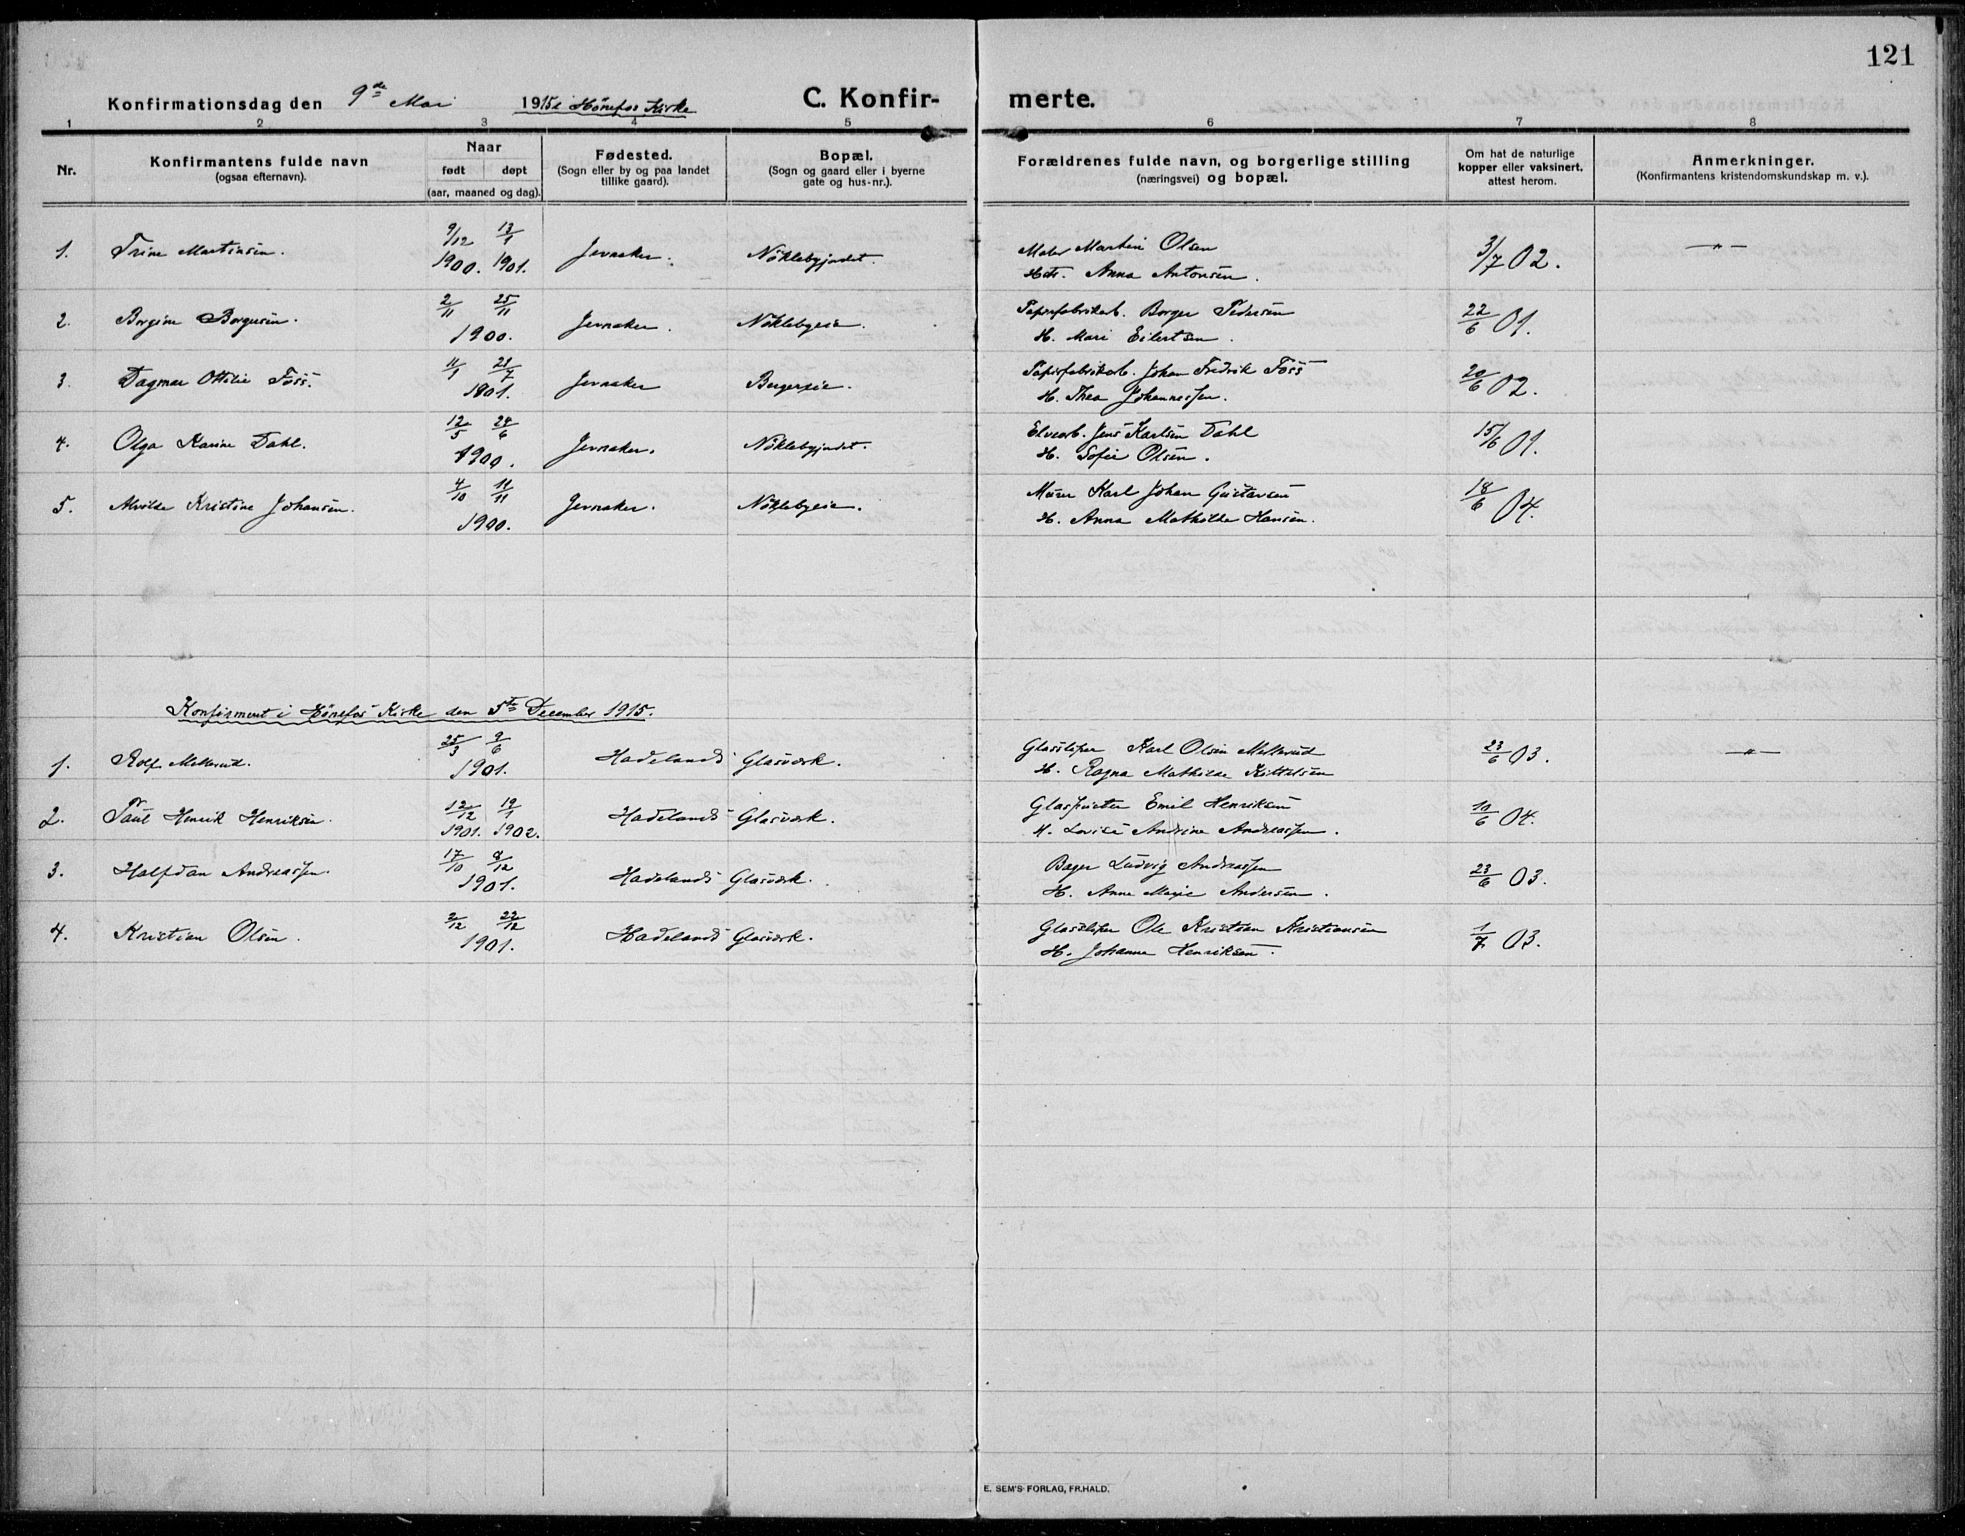 121
Konfirmationsdag den 9de Mai 1915 i Hönefos Kirke C. Konfir- merte.
1 2 3 4 5 6 7 8
Nr. Konfirmantens fulde navn (ogsaa efternavn). Naar født døpt (aar, maaned og dag). Fødested. (Sogn eller by og paa landet tillike gaard). Bopæl. (Sogn og gaard eller i byerne gate og hus-nr.). Forældrenes fulde navn, og borgerlige stilling (næringsvei) og bopæl. Om hat de naturlige kopper eller vaksinert, attest herom. Anmerkninger. (Konfirmantens kristendomskundskap m. v.).
1. Trine Martinsen. 9/12 1900. 13/1 1901. Jevnaker. Nöklebyjordet. Maler Martin Olsen 3/7 02. — " —
H. Anna Antonsen.
2. Borgine Borgersen. 2/11 25/11 1900. Jevnaker. Nöklebyeie. Papirfabrikarb. Borger Pedersen 22/6 01.
H. Mari Eilertsen.
3. Dagmar Ottilie Foss. 11/1 21/7 1901. Jevnaker Bergerseie. Papirfabrikarb. Johan Fredrik Foss 20/6 02.
H. Thea Johannessen.
4. Olga Karine Dahl. 12/5 24/6 1900. Jevnaker. Nöklebyjordet. Elvearb. Jens Karlsen Dahl 15/6 01.
H. Sofie Olsen.
5. Alvilde Kristine Johansen. 4/10 11/11 1900. Jevnaker. Nöklebyeie. Murer Karl Johan Gustavsen 18/6 04.
H. Anna Mathilde Hansen.
Konfirmert i Hönefos Kirke den 5te December 1915.
1. Rolf Mellerud. 25/3 9/6 1901. Hadelands Glasværk. Glassliper Karl Olsen Mellerud 23/6 03. — " —
H. Ragna Mathilde Kittelsen
2. Paul Henrik Henriksen. 12/12 1901. 19/1 1902. Hadelands Glasværk. Glaspuster Emil Henriksen 11/6 04.
H. Lovise Andrine Andreassen.
3. Halfdan Andreassen. 17/10 8/12 1901. Hadelands Glasværk. Bager Ludvig Andreassen 23/6 03.
H. Anne Marie Andersen.
4. Kristian Olsen. 2/12 22/12 1901. Hadelands Glasværk. Glassliper Ole Kristian Kristiansen 1/7 03.
H. Johanne Henriksen.
E. SEM'S FORLAG, FR.HALD.